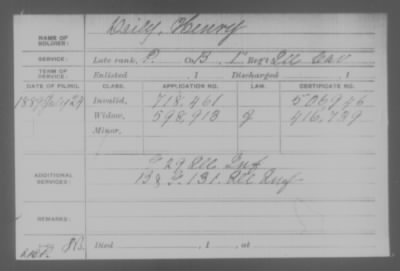 NAME OF SOLDIER: Daily, Henry
SERVICE: Late rank, P. Co. B, 1 Reg't Ill Cav
TERM OF SERVICE: Enlisted , 1 Discharged , 1
DATE OF FILING. CLASS. APPLICATION NO. LAW. CERTIFICATE NO.
1889 July 29 Invalid, 718,461
Widow, 598,913 g 416,739
Minor,
ADDITIONAL SERVICES: F 29 Ill. Inf
B & F. 131. Ill Inf
REMARKS:
Died , 1 , at